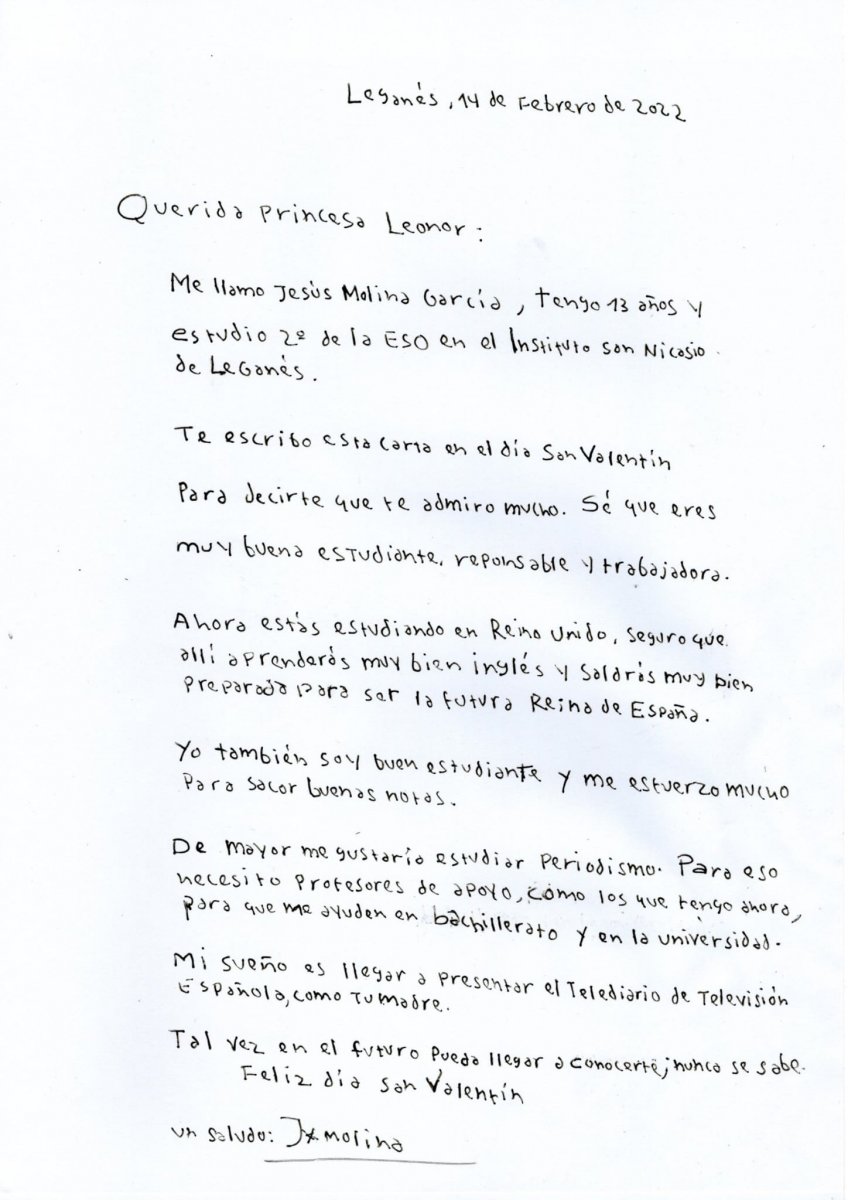 Leganés, 14 de Febrero de 2022
Querida Princesa Leonor:
Me llamo Jesús Molina García, tengo 13 años y
estudio 2º de la ESO en el Instituto San Nicasio
de Leganés.
Te escribo esta carta en el día San Valentín
Para decirte que te admiro mucho. Sé que eres
muy buena estudiante, reponsable y trabajadora.
Ahora estás estudiando en Reino Unido, seguro que
allí aprenderás muy bien inglés y saldrás muy bien
preparada para ser la futura Reina de España.
Yo también soy buen estudiante y me esfuerzo mucho
Para sacar buenas notas.
De mayor me gustaría estudiar Periodismo. Para eso
necesito Profesores de apoyo, como los que tengo ahora,
para que me ayuden en bachillerato y en la universidad.
Mi sueño es llegar a presentar el Telediario de Televisión
Española, como tu madre.
Tal vez en el futuro pueda llegar a conocerte, nunca se sabe.
Feliz día San Valentín
un saludo: Jxmolina